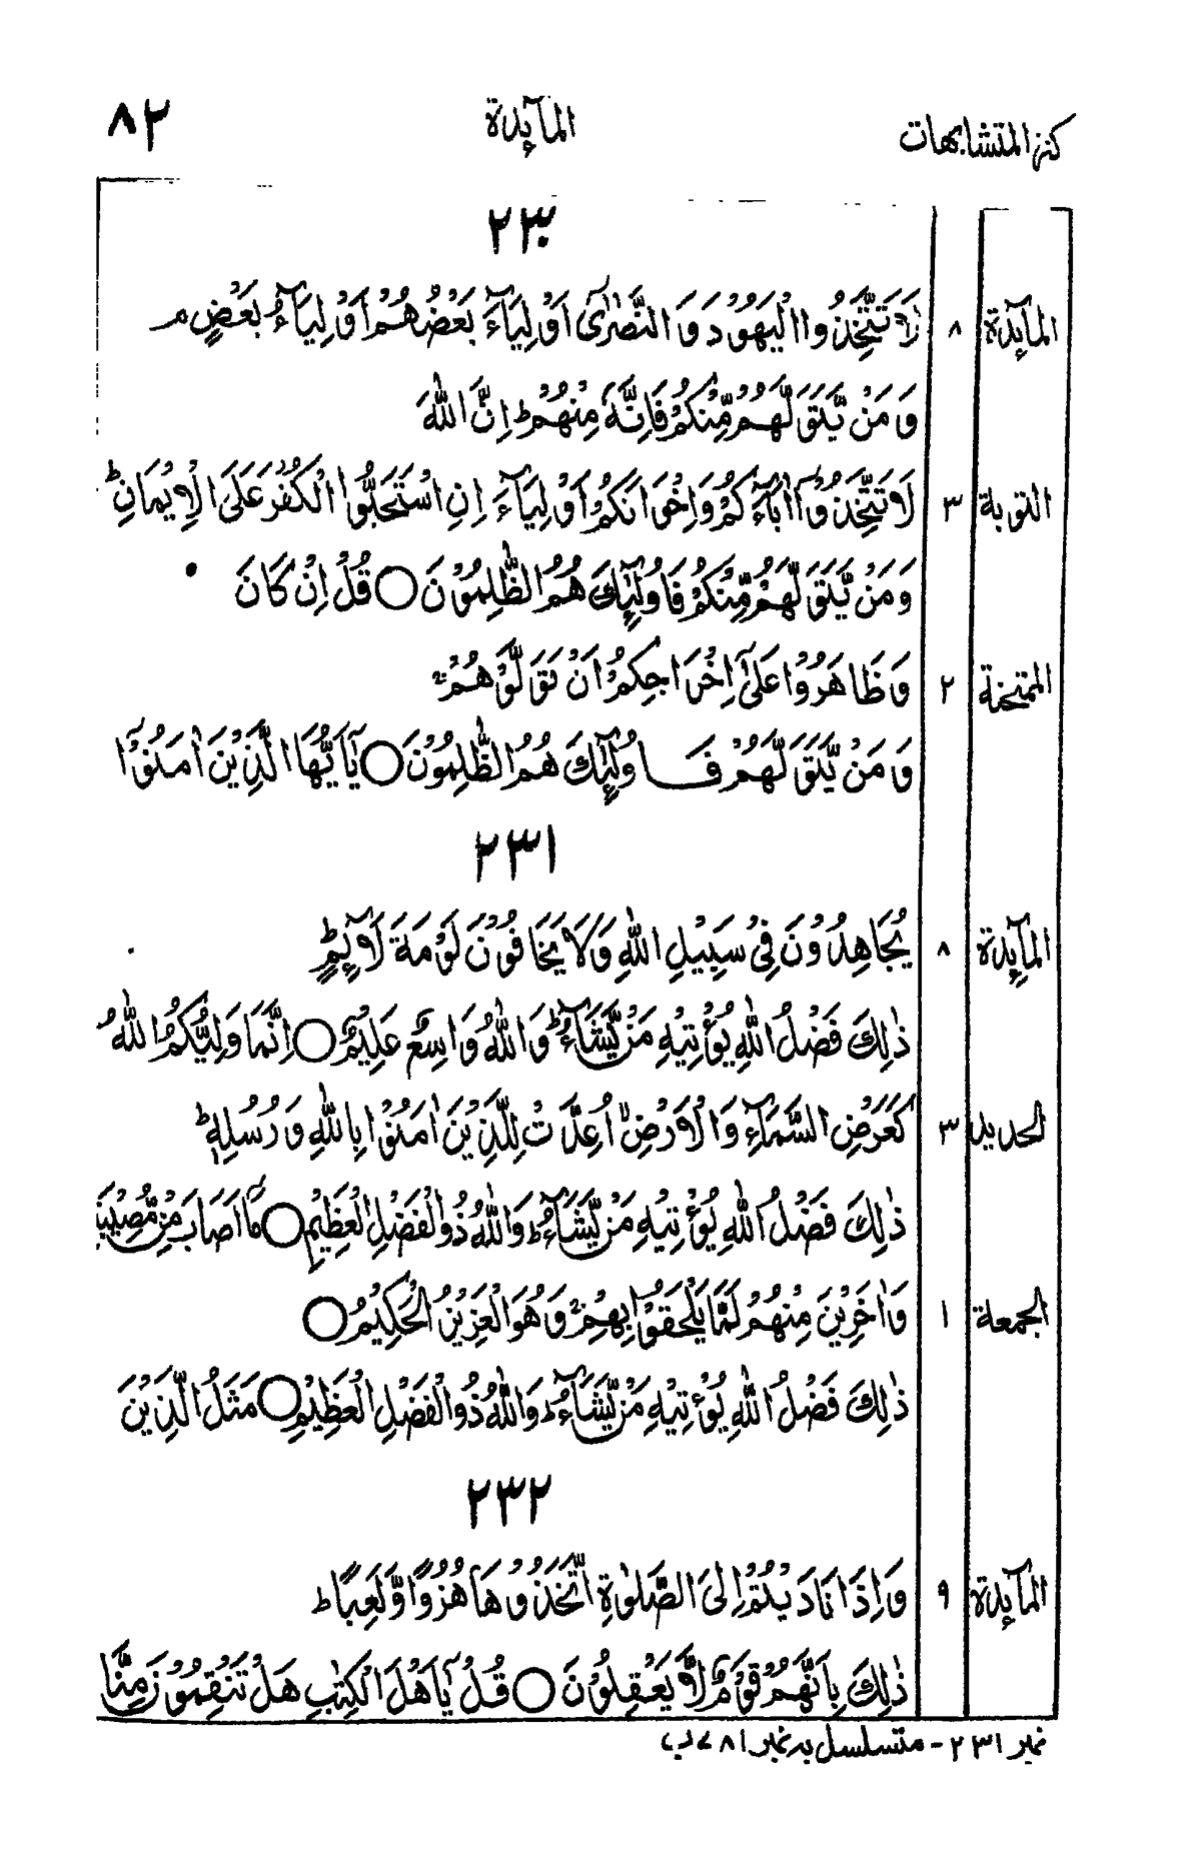 كنز المتشابهات المآئدة ٨٢
٢٣٠
المآئدة ٨ لَا تَتَّخِذُوا الْيَهُوْدَ وَ النَّصٰرٰٓى اَوْلِيَآءَ بَعْضُهُمْ اَوْلِيَآءُ بَعْضٍ م
وَ مَنْ يَّتَوَلَّهُمْ مِّنْكُمْ فَاِنَّهٗ مِنْهُمْ ط اِنَّ اللّٰهَ
التوبة ٣ لَا تَتَّخِذُوْٓا اٰبَآءَكُمْ وَاِخْوَانَكُمْ اَوْلِيَآءَ اِنِ اسْتَحَبُّوا الْكُفْرَ عَلَى الْاِيْمَانِ ط
وَ مَنْ يَّتَوَلَّهُمْ مِّنْكُمْ فَاُولٰٓئِكَ هُمُ الظّٰلِمُوْنَ ○ قُلْ اِنْ كَانَ
الممتحنة ٢ وَ ظَاهَرُوْا عَلٰٓى اِخْرَاجِكُمْ اَنْ تَوَلَّوْهُمْ ج
وَ مَنْ يَّتَوَلَّهُمْ فَاُولٰٓئِكَ هُمُ الظّٰلِمُوْنَ ○ يٰٓاَيُّهَا الَّذِيْنَ اٰمَنُوْٓا
٢٣١
المآئدة ٨ يُجَاهِدُوْنَ فِيْ سَبِيْلِ اللّٰهِ وَلَا يَخَافُوْنَ لَوْمَةَ لَآئِمٍ ط
ذٰلِكَ فَضْلُ اللّٰهِ يُؤْتِيْهِ مَنْ يَّشَآءُ ط وَ اللّٰهُ وَاسِعٌ عَلِيْمٌ ○ اِنَّمَا وَلِيُّكُمُ اللّٰهُ
الحديد ٣ كَعَرْضِ السَّمَآءِ وَ الْاَرْضِ اُعِدَّتْ لِلَّذِيْنَ اٰمَنُوْا بِاللّٰهِ وَ رُسُلِهٖ ط
ذٰلِكَ فَضْلُ اللّٰهِ يُؤْتِيْهِ مَنْ يَّشَآءُ ط وَاللّٰهُ ذُو الْفَضْلِ الْعَظِيْمِ ○ مَآ اَصَابَ مِنْ مُّصِيْبَةٍ
الجمعة ١ وَاٰخَرِيْنَ مِنْهُمْ لَمَّا يَلْحَقُوْا بِهِمْ ط وَ هُوَ الْعَزِيْزُ الْحَكِيْمُ ○
ذٰلِكَ فَضْلُ اللّٰهِ يُؤْتِيْهِ مَنْ يَّشَآءُ ط وَاللّٰهُ ذُو الْفَضْلِ الْعَظِيْمِ ○ مَثَلُ الَّذِيْنَ
٢٣٢
المآئدة ٩ وَ اِذَا نَادَيْتُمْ اِلَى الصَّلٰوةِ اتَّخَذُوْهَا هُزُوًا وَّلَعِبًا ط
ذٰلِكَ بِاَنَّهُمْ قَوْمٌ لَّا يَعْقِلُوْنَ ○ قُلْ يٰٓاَهْلَ الْكِتٰبِ هَلْ تَنْقِمُوْنَ مِنَّآ
نمبر ٢٣١ - متسلسل به نمبر